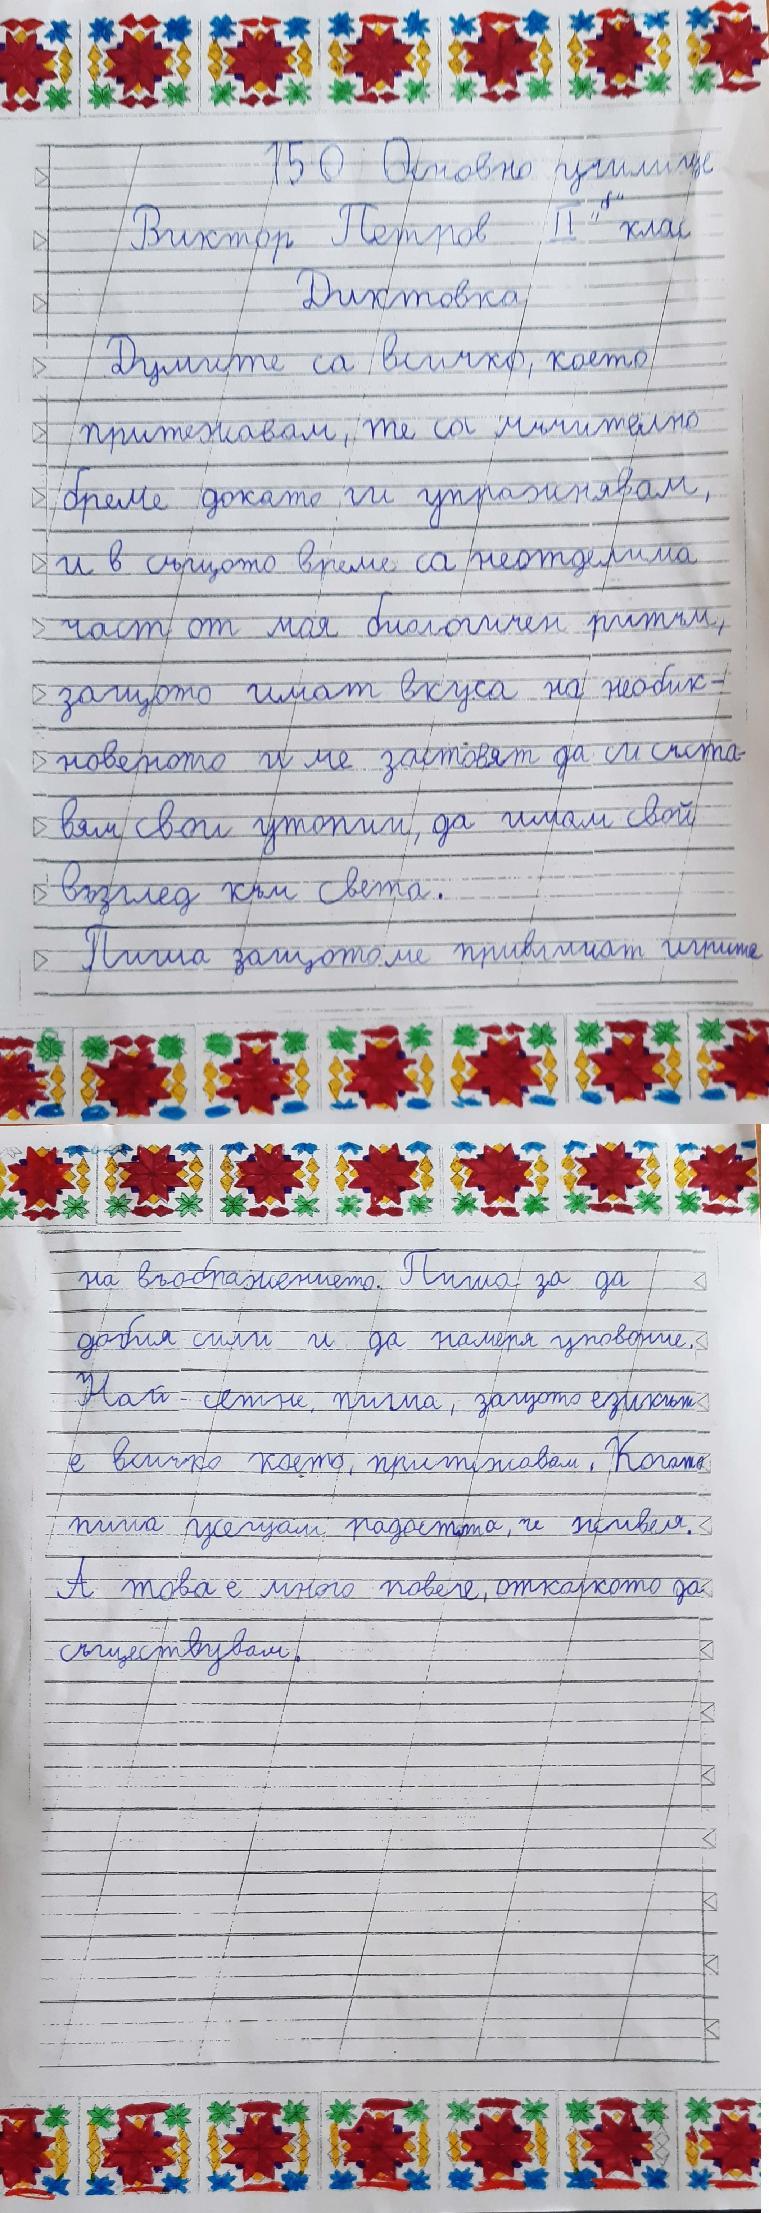 150 Основно училище
Виктор Петров II "в" клас
Диктовка
Думите са всичко, което
притежавам, те са мъчително
бреме докато ги упражнявам,
и в същото време са неотделима
част от моя биологичен ритъм,
защото имат вкуса на необик-
новеното и ме заставят да си съста-
вям свои утопии, да имам свой
възглед към света.
Пиша защото ме привличат игрите
на въображението. Пиша за да
добия сили и да намеря упование.
Най - сетне, пиша, защото езикът
е всичко което, притежавам. Когато
пиша усещам радостта, че живея.
А това е много повече, отколкото да
съществувам.